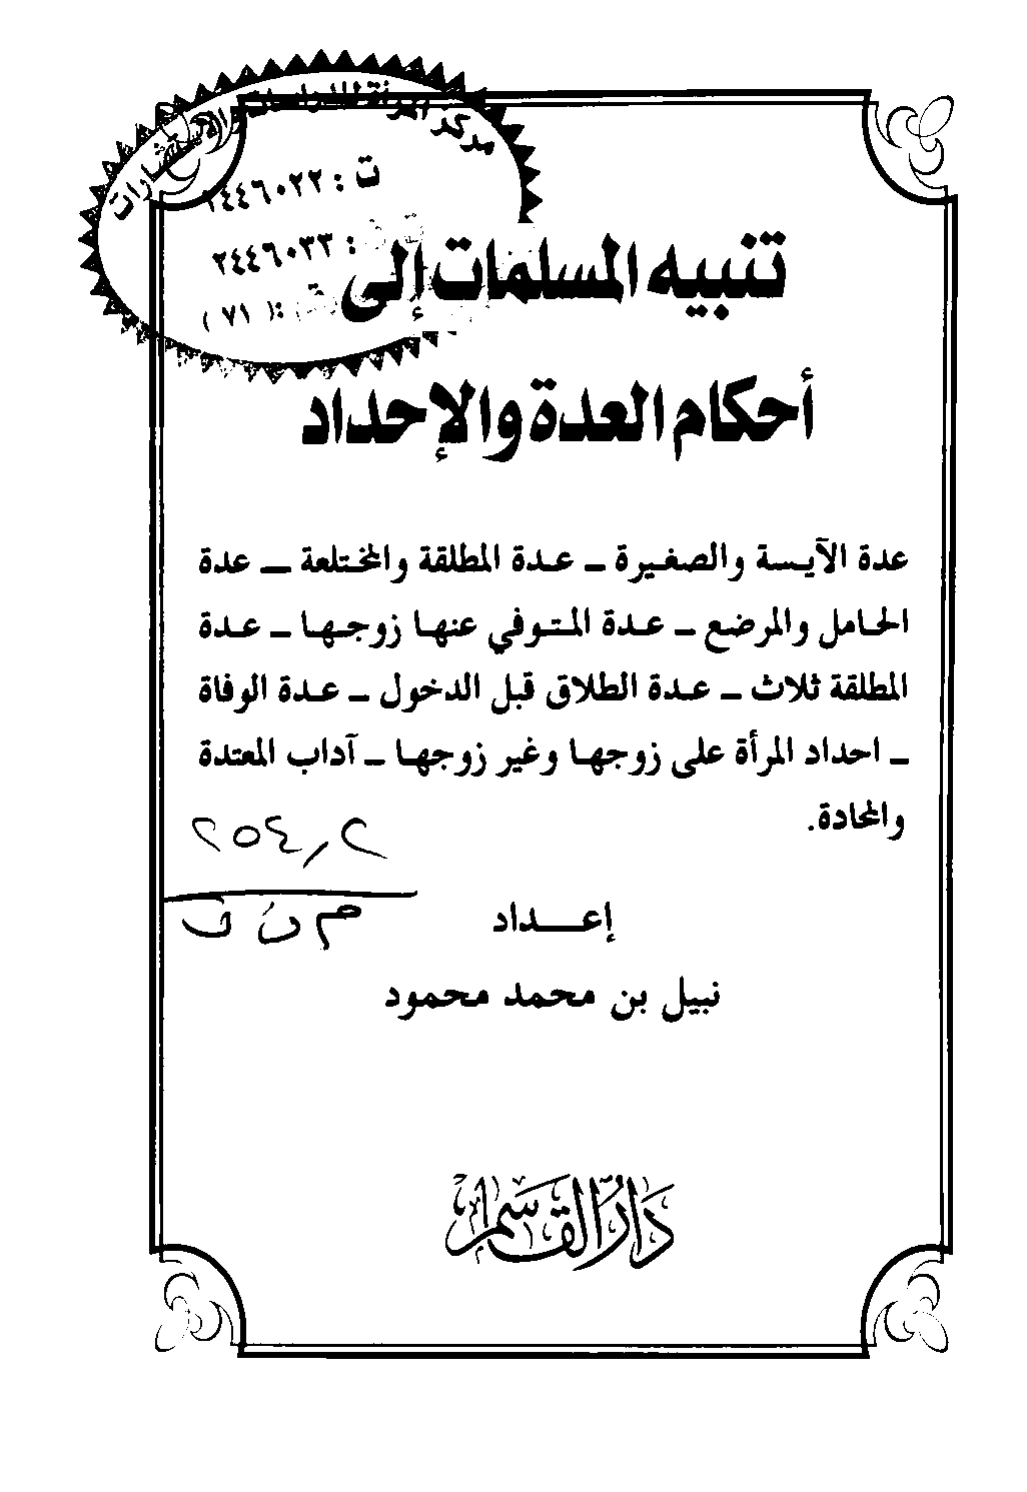 مركز المرأة للدراسات والاستشارات
ت : ٢٤٤٦٠٢٢
: ٢٤٤٦٠٣٣
( ٧١ ):
تنبيه المسلمات إلى
أحكام العدة والإحداد
عدة الآيسة والصغيرة ــ عدة المطلقة والمختلعة ــ عدة
الحامل والمرضع ــ عدة المتوفي عنها زوجها ــ عدة
المطلقة ثلاث ــ عدة الطلاق قبل الدخول ــ عدة الوفاة
ــ احداد المرأة على زوجها وغير زوجها ــ آداب المعتدة
والمحادة.
٢٥٤,٢
م ن ن
إعــداد
نبيل بن محمد محمود
دَارُ القَاسِم